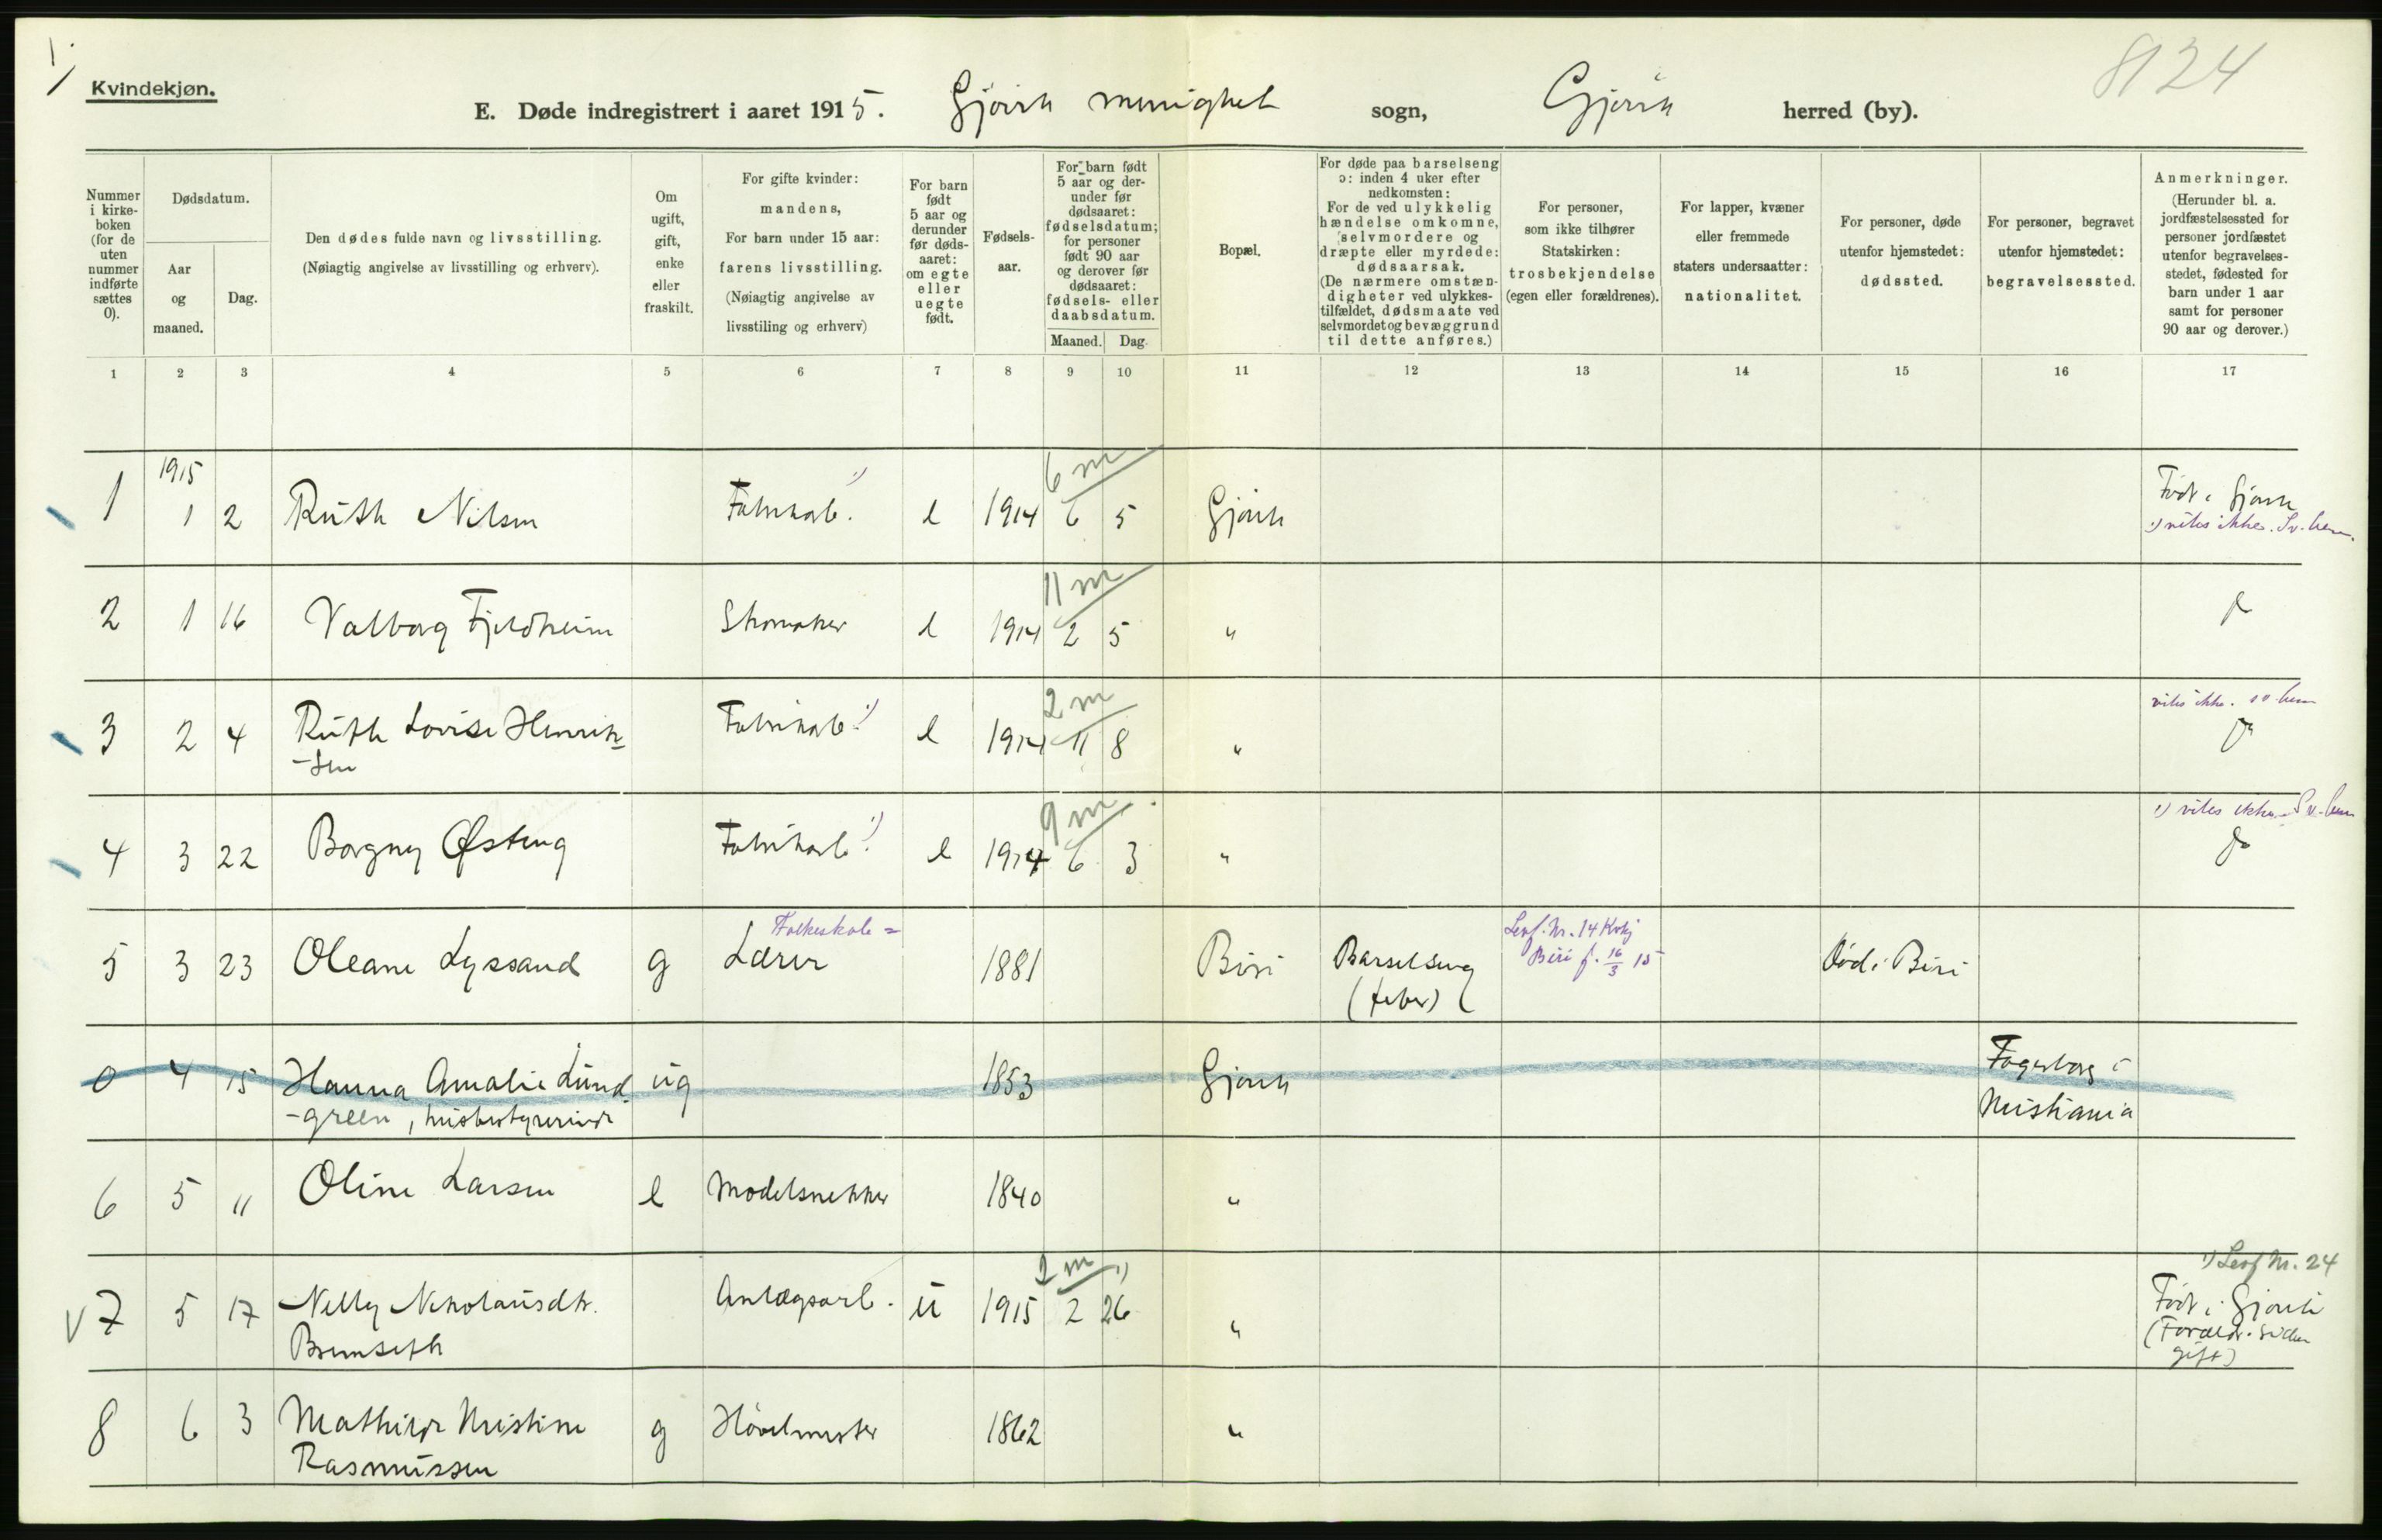 8124
Kvindekjøn.
E. Døde indregistrert i aaret 1915. Gjøvik menighet sogn, Gjøvik herred (by).
Nummer
i kirke-
boken
(for de
uten
nummer
indførte
sættes
0).
Dødsdatum.
Aar
og
maaned.
Dag.
Den dødes fulde navn og livsstilling.
(Nøiagtig angivelse av livsstilling og erhverv).
Om
ugift,
gift,
enke
eller
fraskilt.
For gifte kvinder:
mandens,
For barn under 15 aar:
farens livsstilling.
(Nøiagtig angivelse av
livsstiling og erhverv)
For barn
født
5 aar og
derunder
før døds-
aaret:
om egte
eller
uegte
født.
Fødsels-
aar.
For barn født
5 aar og der-
under før
dødsaaret:
fødselsdatum;
for personer
født 90 aar
og derover før
dødsaaret:
fødsels- eller
daabsdatum.
Maaned. Dag.
Bopæl.
For døde paa barselseng
ɔ: inden 4 uker efter
nedkomsten:
For de ved ulykkelig
hændelse omkomne,
selvmordere og
dræpte eller myrdede:
dødsaarsak.
(De nærmere omstæn-
digheter ved ulykkes-
tilfældet, dødsmaate ved
selvmordet og bevæggrund
til dette anføres.)
For personer,
som ikke tilhører
Statskirken:
trosbekjendelse
(egen eller forældrenes).
For lapper, kvæner
eller fremmede
staters undersaatter:
nationalitet.
For personer, døde
utenfor hjemstedet:
dødssted.
For personer, begravet
utenfor hjemstedet:
begravelsessted.
Anmerkninger.
(Herunder bl. a.
jordfæstelsessted for
personer jordfæstet
utenfor begravelses-
stedet, fødested for
barn under 1 aar
samt for personer
90 aar og derover.)
1 2 3 4 5 6 7 8 9 10 11 12 13 14 15 16 17
1915 6 m
1 1 2 Ruth Nilsen Fabrikarb. 1) e 1914 6 5 Gjøvik Født i Gjøvik
1) vites ikke. Sv. hem.
11 m
2 1 16 Valborg Fjeldheim Skomaker e 1914 2 5 "
2 m vites ikke. sv. hem
3 2 4 Ruth Lovise Henrik- Fabrikarb. 1) e 1914 11 8 "
-sen
9 m 1) vites ikke. Sv. hem
4 3 22 Borgny Østeng Fabrikarb. 1) e 1914 6 3 "
Folkeskole = Levf. Nr. 14 Kvkj
5 3 23 Oleane Lyssand g Lærer 1881 Biri Barselseng Biri f. 16/3 15 Død i Biri
(feber)
0 4 15 Hanna Amalie Lund- ug 1853 Gjøvik Fagerborg i
-green, husbestyrerinde Kristiania
6 5 11 Oline Larsen e Modelsnekker 1840 "
2 m 1) 1) Levf Nr. 24
7 5 17 Nelly Nikolausdtr. Anlægsarb. u 1915 2 26 " Født i Gjøvik
Brumseth (Forældr. siden
gift)
8 6 3 Mathilde Kristine g Høvelmester 1862 "
Rasmussen